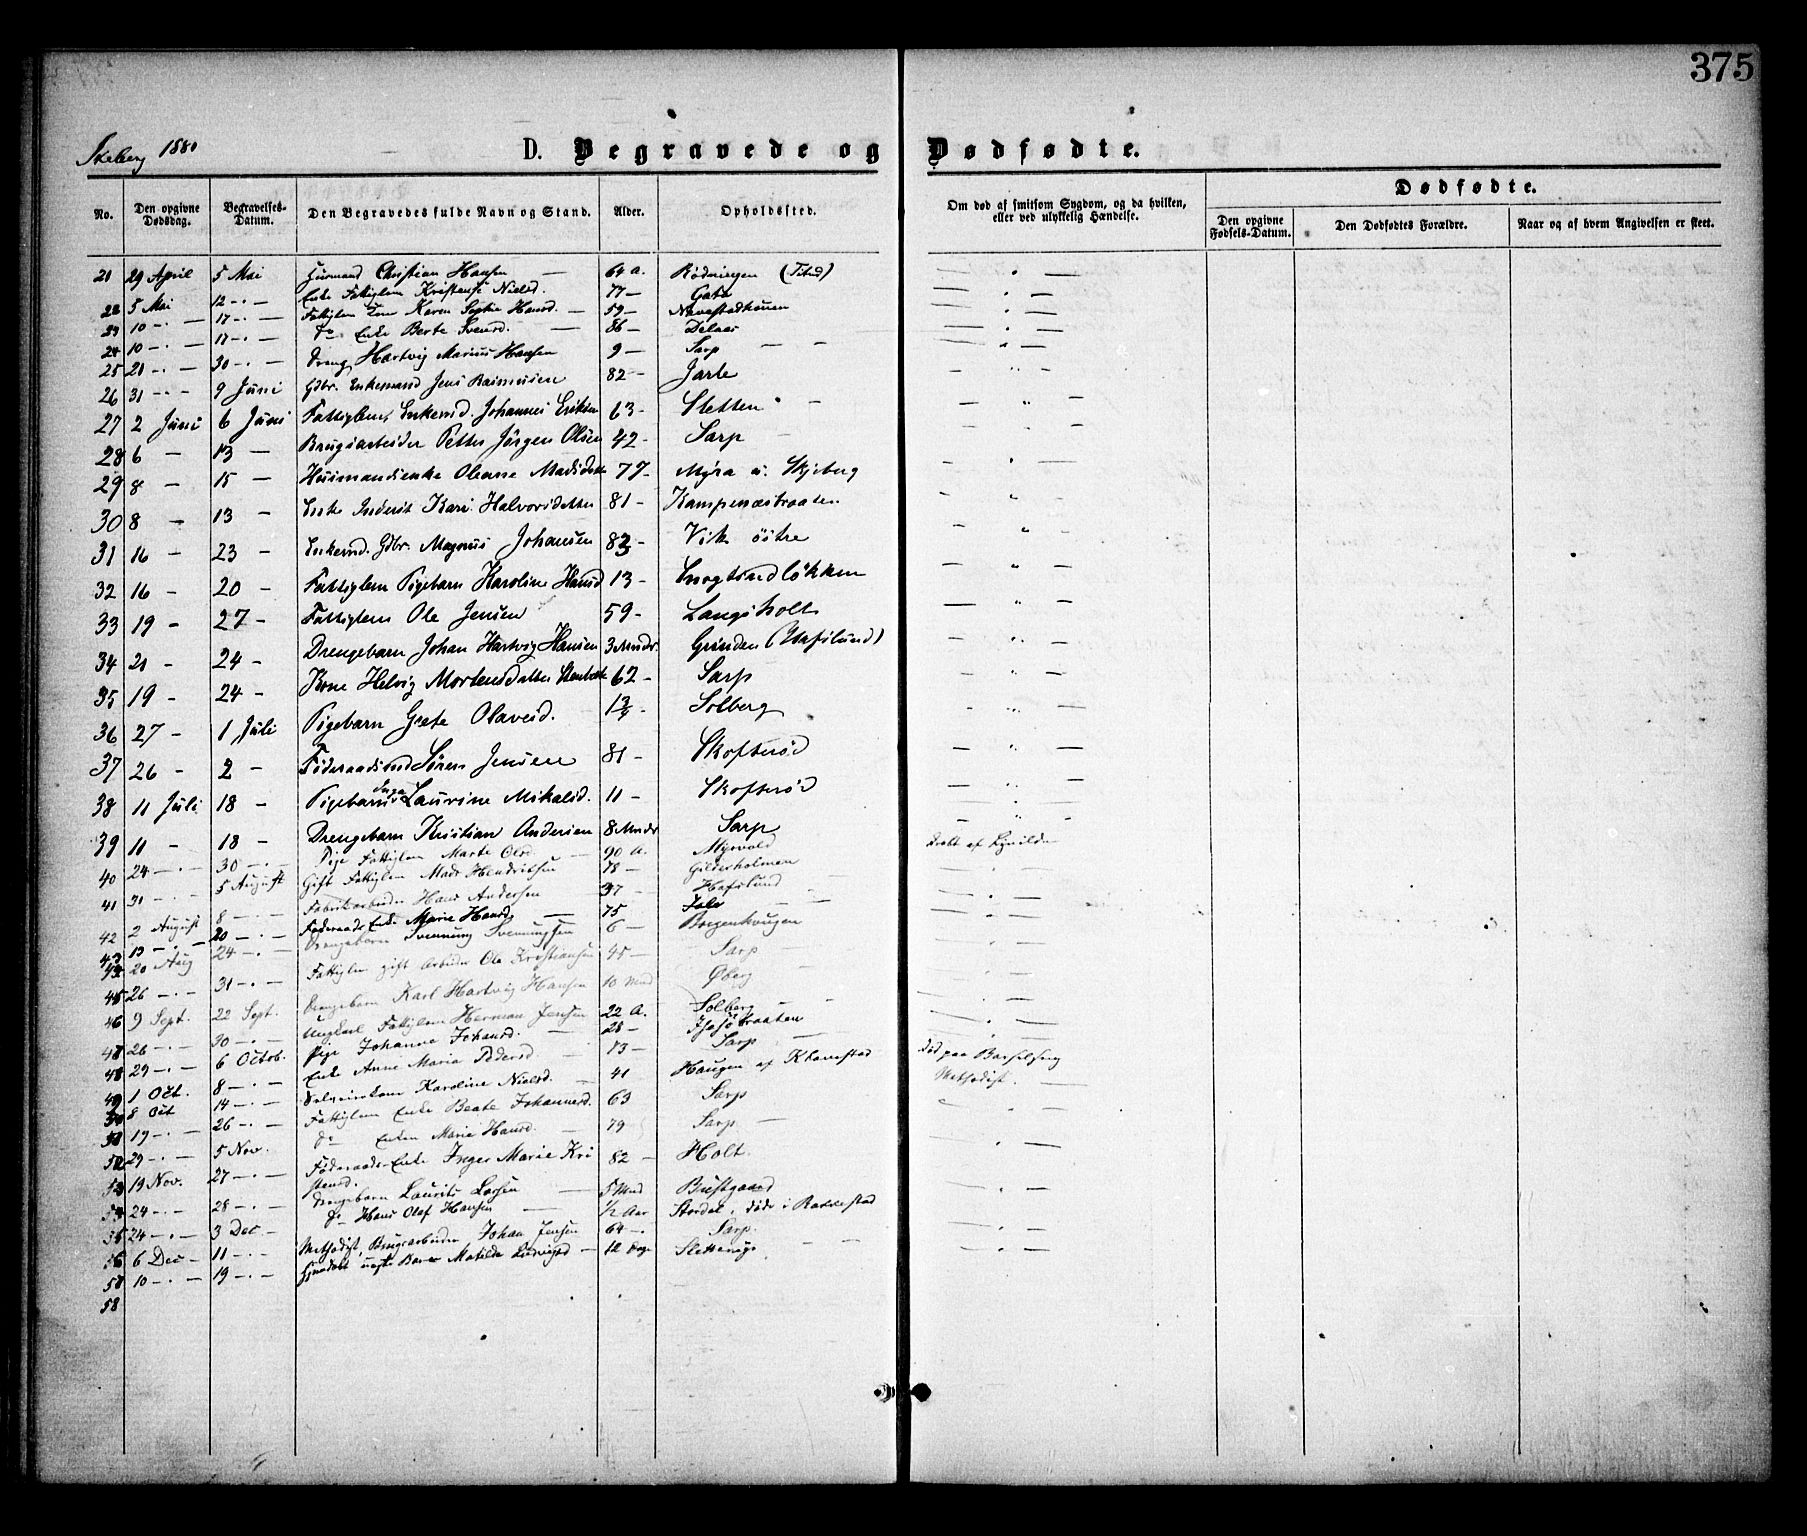 375
Skeberg 1880
D. Begravede og Dødfødte.
No. Den opgivne Dødsdag. Begravelses-Datum. Den Begravedes fulde Navn og Stand. Alder. Opholdssted. Om død af smitsom Sygdom, og da hvilken, eller ved ulykkelig Hændelse.
Dødfødte.
Den opgivne Fødsels-Datum. Den Dødfødtes Forældre. Naar og af hvem Angivelsen er skeet.
21 29 April 5 Mai Huusmand Christian Hansen — 64 A. Rødningen
22 5 Mai 12 -·- Enke Fattiglem Nielsd. 77 — Gata
23 10 -·- 17 -·- Fattiglem Karen Sophie Hansd. — 59 —
24 10 -·- 17 -·- Do Enke Berte Svensd. — 86 —
25 21 -·- 30 -·- Dreng Hartvig Marius Hansen 9 — Sarp
26 31 -·- 9 Juni Gdbr. Enkemand Jens Rasmusen 82 — Jarle
27 2 Juni 6 Juni Fattiglem, Enkemd. Johannes Eriksen 63 - Sletten
28 6 — 13 — Brugsarbeider Petter Jørgen Olsen 42 - Sarp
29 8 — 15 — Huusmandsenke Oleane 77 - Myra i Skjeberg
30 8 - 13 - Enke Inderst Kari Halvorsdatter 81 - Kampenæsbraaten
31 16 - 23 - Enkemd. Gdbr. Magnus Johansen 82 - Vik østre
32 16 - 20 - Fattiglem Pigebarn Karoline Hansd 13 -
33 19 - 27 - Fattiglem Ole Jensen 59 - Langsholt
34 21 - 24 - Drengebarn Johan Hartvig Hansen 3 Mndr. Grinden (Hafslund)
35 19 - 24 - Kone Helvig Mortensdatter 62 - Sarp
36 27 - 1 Juli Pigebarn Grete Olavesd. Solberg
37 26 - 2 - Føderaadsmd Søren Jensen 81 - Skofterød
38 11 Juli 18 - Pigebarn Inga Laurine Mikalsd. 11 - Skofterød
39 11 - 18 - Drengebarn Kristian Andersen 8 Mndr Sarp
40 24 -·- 30 -·- Pige Fattiglem Marte Olsd. 90 A. Myrvold
41 31 -·- 5 August Gift Fattiglem Mads Hendriksen 78 - Gilderholmen
42 2 August 8 -·- Fabrikarbeider Hans Andersen 37 - Hafslund
43 13 -·- 20 -·- Føderaads Enke Marie Hansd. — 75
44 20 Aug 24 -·- Drengebarn Svennung Svennungsen 6 — Borgenhaugen
45 26 -·- 31 -·- Fattiglem gift Arbeider Ole Kristiansen 45 — Sarp
46 9 Sept. 22 Sept. Drengebarn Karl Hartvig Hansen 10 Mnd Øberg
47 26 -·- 30 -·- Ungkarl Fattiglem Herman Jensen 22 A. Solberg
48 29 -·- 6 Octob. Pige Johanne Johansd. 28 —
49 1 Oct. 8 -·- Enke Anne Maria Pedersd — 73 — Sarp
50 8 Oct 14 -·- Karoline Nielsd. 41 Haugen af Klavestad Død paa Barselseng
51 19 -·- 26 -·- Fattiglem Enke Beate Johannesd. 63 Sarp Methodist.
52 29 -·- 5 Nov. Do Enken Marie Hansd. — 79 Sarp
53 19 Nov. 27 -·- Føderaads-Enke Inger Marie Kristensd. 82 — Holt.
54 24 -·- 28 -·- Drengebarn Laurits Larsen — 5 Mnd
55 24 -·- 3 Dec - Do Hans Olaf Hansen — 1/2 Aar Stordal, døde i Rakkestad
56 6 Dec - 11 -·- Methodist, Brugsarbeider Johan Jensen 64 - Sarp.
57 10 -·- 19 -·- uægte Barn Matilde Ludvigsd - 12 Dage
58